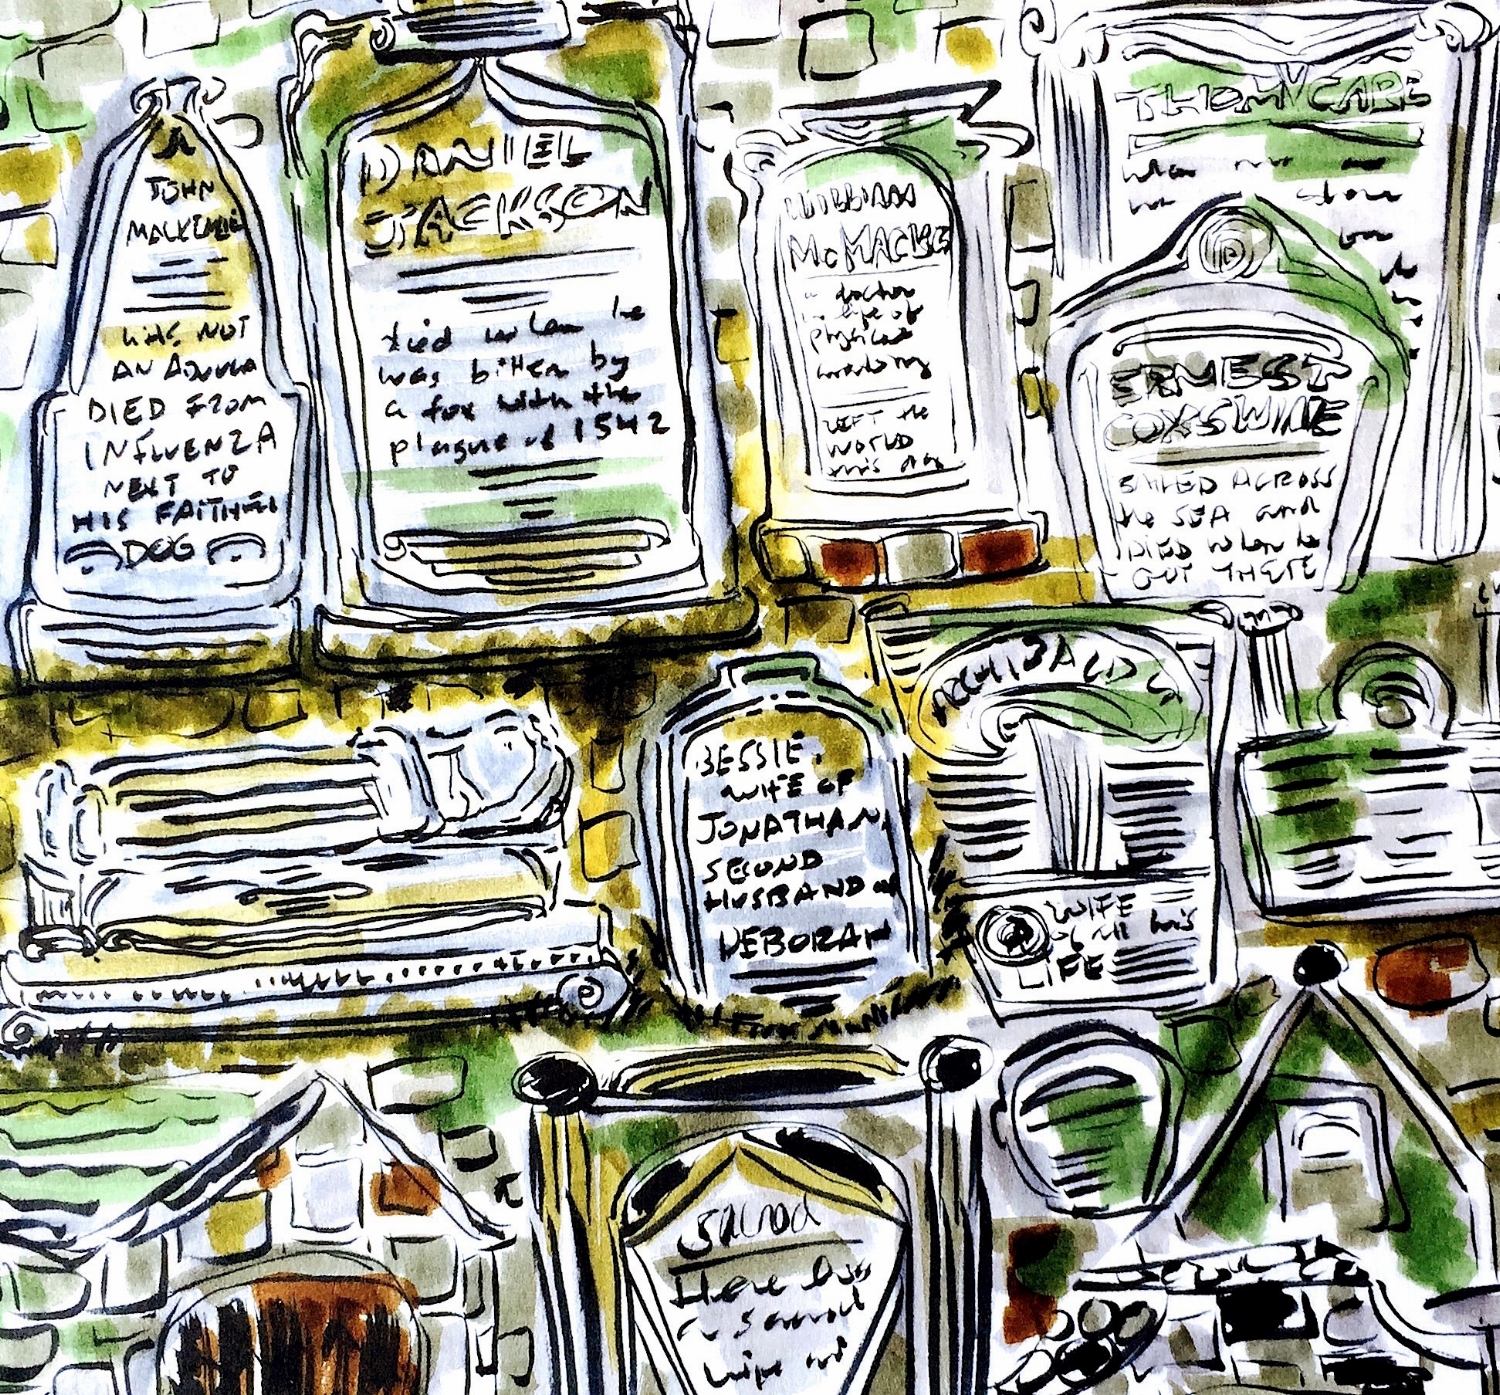 JOHN
WAS NOT
AN
DIED FROM
INFLUENZA
NEXT TO
HIS FAITHFUL
DOG
DANIEL
JACKSON
died when he
was bitten by
a fox with the
plague of 1542
WILLIAM
a doctor
in life of
physical
LEFT the
WORLD
this day
THOM CARE
ERNEST
COXSWINE
SAILED ACROSS
the SEA and
DIED when he
GOT THERE
ARCHIBALD
WIFE
of all his
LIFE
BESSIE,
WIFE OF
JONATHAN,
SECOND
HUSBAND of
DEBORAH
Sacred
Here lies
a sacred